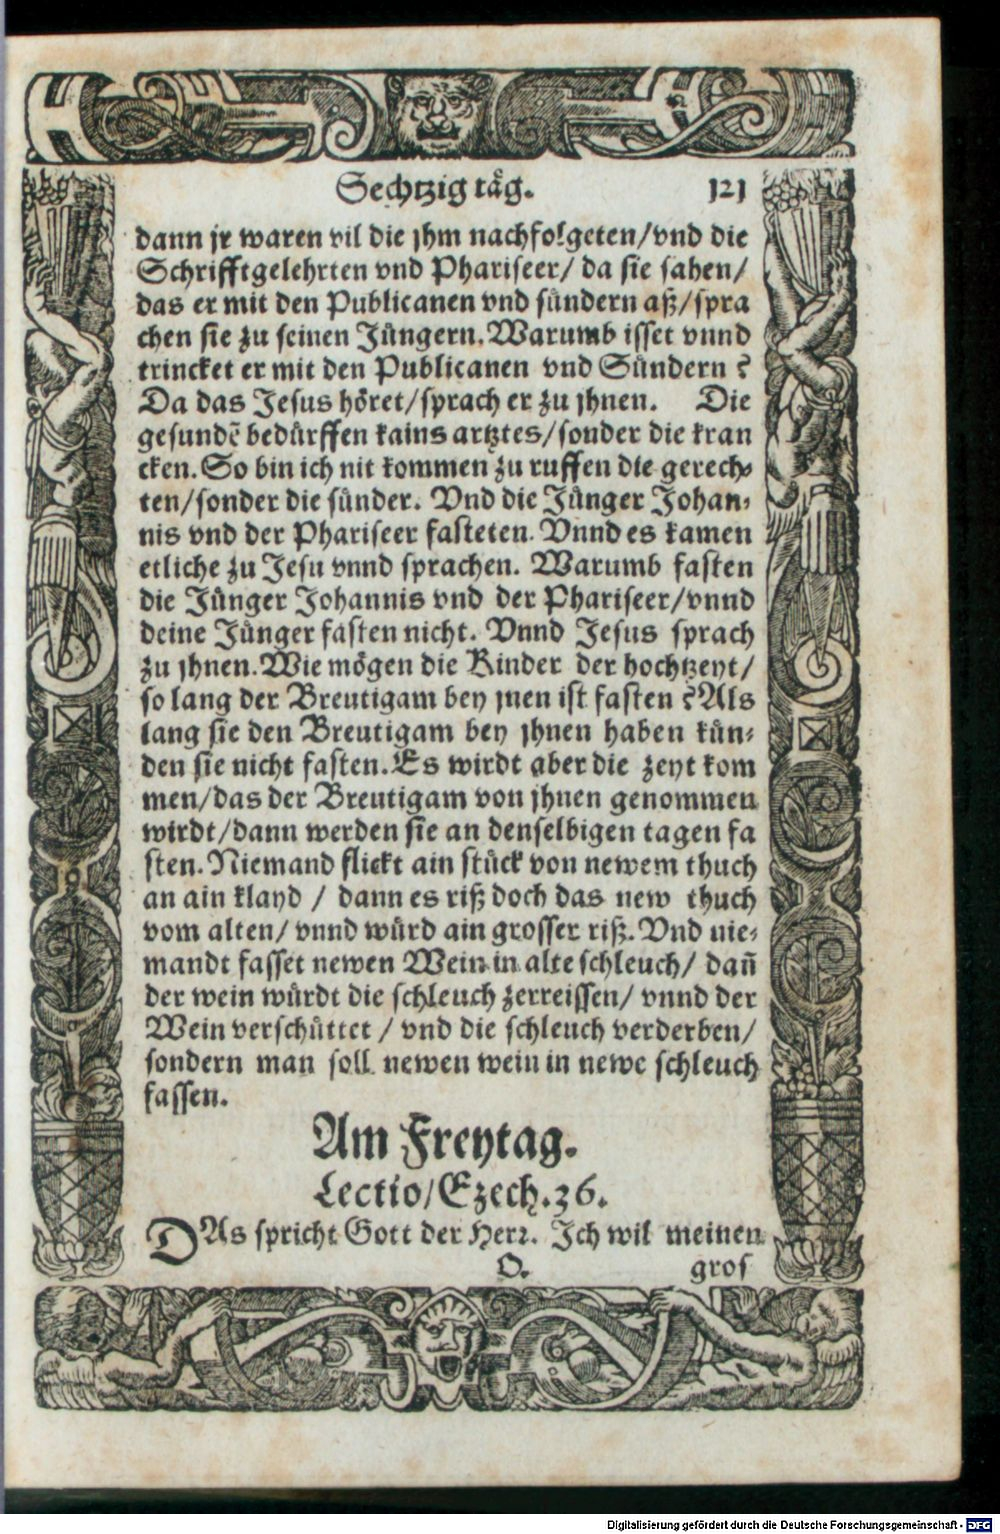 Sechtzig täg. 121
dann jr waren vil die jhm nachfolgeten/vnd die
Schrifftgelehrten vnd Phariseer/ da sie sahen/
das er mit den Publicanen vnd sündern aß/spra
chen sie zu seinen Jüngern. Warumb isset vnnd
trincket er mit den Publicanen vnd Sündern ?
Da das Jesus höret/sprach er zu jhnen. Die
gesundẽ bedürffen kains artztes/sonder die kran
cken. So bin ich nit kommen zu ruffen die gerech-
ten/sonder die sünder. Vnd die Jünger Johan-
nis vnd der Phariseer fasteten. Vnnd es kamen
etliche zu Jesu vnnd sprachen. Warumb fasten
die Jünger Johannis vnd der Phariseer/vnnd
deine Jünger fasten nicht. Vnnd Jesus sprach
zu jhnen. Wie mögen die Kinder der hochtzeyt/
so lang der Breutigam bey jnen ist fasten ? Als
lang sie den Breutigam bey jhnen haben kün-
den sie nicht fasten. Es wirdt aber die zeyt kom
men/das der Breutigam von jhnen genommen
wirdt/dann werden sie an denselbigen tagen fa
sten. Niemand flickt ain stück von newem thuch
an ain klayd / dann es riß doch das new thuch
vom alten/ vnnd würd ain grosser riß. Vnd nie-
mandt fasset newen Wein in alte schleuch/ dañ
der wein würdt die schleuch zerreissen/ vnnd der
Wein verschüttet / vnd die schleuch verderben/
sondern man soll newen wein in newe schleuch
fassen.
Am Freytag.
Lectio/Ezech. 36.
DAs spricht Gott der Herr. Ich wil meinen
O. gros
Digitalisierung gefördert durch die Deutsche Forschungsgemeinschaft - DFG